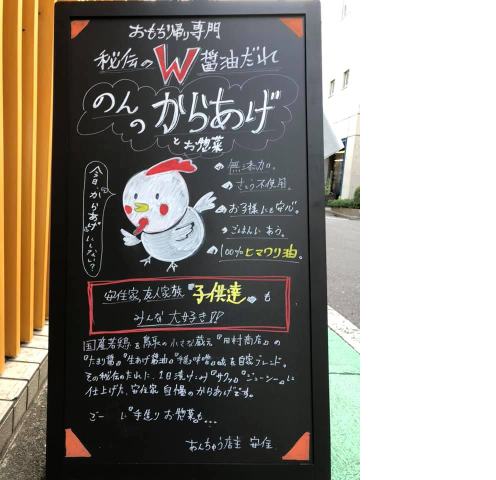 おもち帰り専門
秘伝のW醤油だれ
のんのからあげ
とお惣菜
今日からあげにしない?
無添加。
さとう不使用。
お子様にも安心。
ごはんにあう。
100%ヒマワリ油。
安住家,友人家族『子供達』も
みんな大好き!!
国産若鶏を の小さな蔵元『田村商店』の
『たまり醤』『生あげ醤油』 を自家ブレンド。
その秘伝のたれに、1日漬けこみ『サクッ』『ジューシー』に
仕上げた、安住家自慢のからあげです。
『手造りお惣菜も...
あんちゅう店主 安住